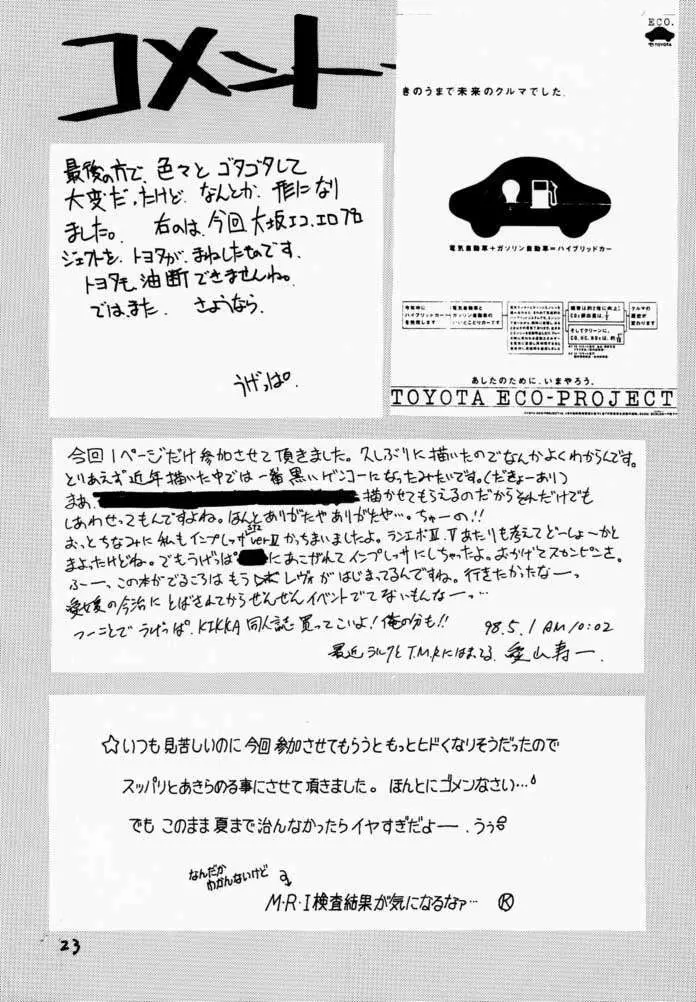 コメント
最後の方で、色々とゴタゴタして
大変だったけど、なんとか、形になり
ました。 右のは、今回大坂エコ、エロプロ
ジェクトを、トヨタが、まねしたものです。
トヨタも、油断できませんね。
では、また、さようなら。
うげっぱ。
ECO.
TOYOTA
きのうまで未来のクルマでした。
電気自動車+ガソリン自動車=ハイブリッドカー
今年中に
ハイブリッドカー
を発売します
電気自動車と
ガソリン自動車の
いいとこどりカーです
燃費は約2倍に向上。
CO2排出量は、1/2
そしてクリーンに。
CO、HC、NOxは、約1/10
クルマの
歴史が
変わります
あしたのために、いまやろう。
TOYOTA ECO-PROJECT
今回1ページだけ参加させて頂きました。久しぶりに描いたのでなんかよくわからんです。
とりあえず近年描いた中では一番黒いゲンコーになったみたいです。(だきょーあり)
まあ、描かせてもらえるのだからそれだけでも
しあわせってもんですよね。ほんとありがたやありがたや…。ちゃーの!!
おっとちなみに私もインプレッサver.Ⅱかっちまいましたよ。ランエボⅣ.Ⅴあたりも考えてどーしょーかと
まよったけどね。でもうげっぱにあこがれてインプレッサにしちゃったよ。おかげでスカンピンさ。
ふー、この本がでるころはもうレヴォがはじまってるんですね。行きたかったなーっ
愛媛の今治にとばされてからぜんぜんイベントでてないもんなーっ…
つーことでうげっぱ、KIKKA同人誌買ってこいよ!俺の分も!!
98.5.1 AM10:02
最近ラルクとT.M.Rにはまってる 愛山寿一
☆いつも見苦しいのに今回参加させてもらうともっとヒドくなりそうだったので
スッパリとあきらめる事にさせて頂きました。ほんとにゴメンなさい…
でも このまま夏まで治んなかったらイヤすぎだよー、うぅ
なんだか
わかんないけど
M・R・I検査結果が気になるなァ… Ⓚ
23